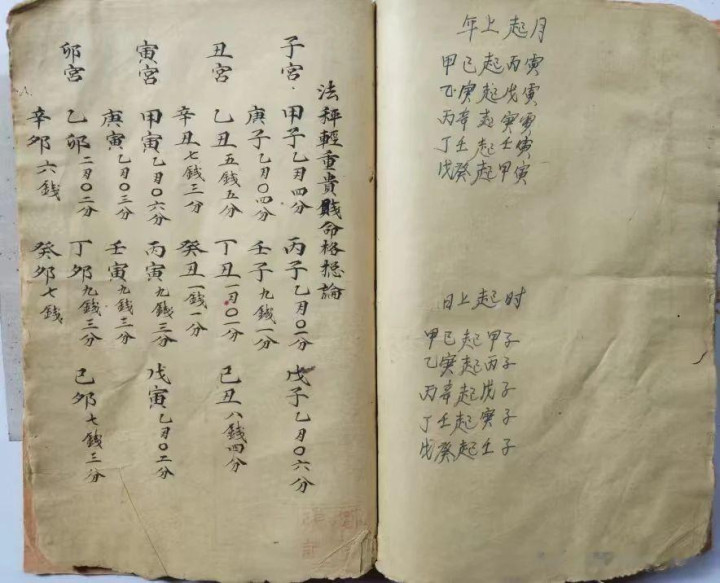 年上起月
甲已起丙寅
乙庚起戊寅
丙辛起庚寅
丁壬起壬寅
戊癸起甲寅
日上起时
甲已起甲子
乙庚起丙子
丙辛起戊子
丁壬起庚子
戊癸起壬子
法秤輕重貴賤命格總論
子宮 甲子乙刄四分 丙子乙刄〇二分 戊子乙刄〇六分
庚子乙刄〇四分 壬子九銭一分
丑宮 乙丑五銭五分 丁丑一刄〇一分 己丑八銭四分
辛丑七銭三分 癸丑一銭一分
寅宮 甲寅乙刄〇六分 丙寅九銭三分 戊寅乙刄〇二分
庚寅乙刄〇三分 壬寅九銭三分
卯宮 乙卯二刄〇二分 丁卯九銭三分 己卯七銭三分
辛卯六銭 癸卯七銭